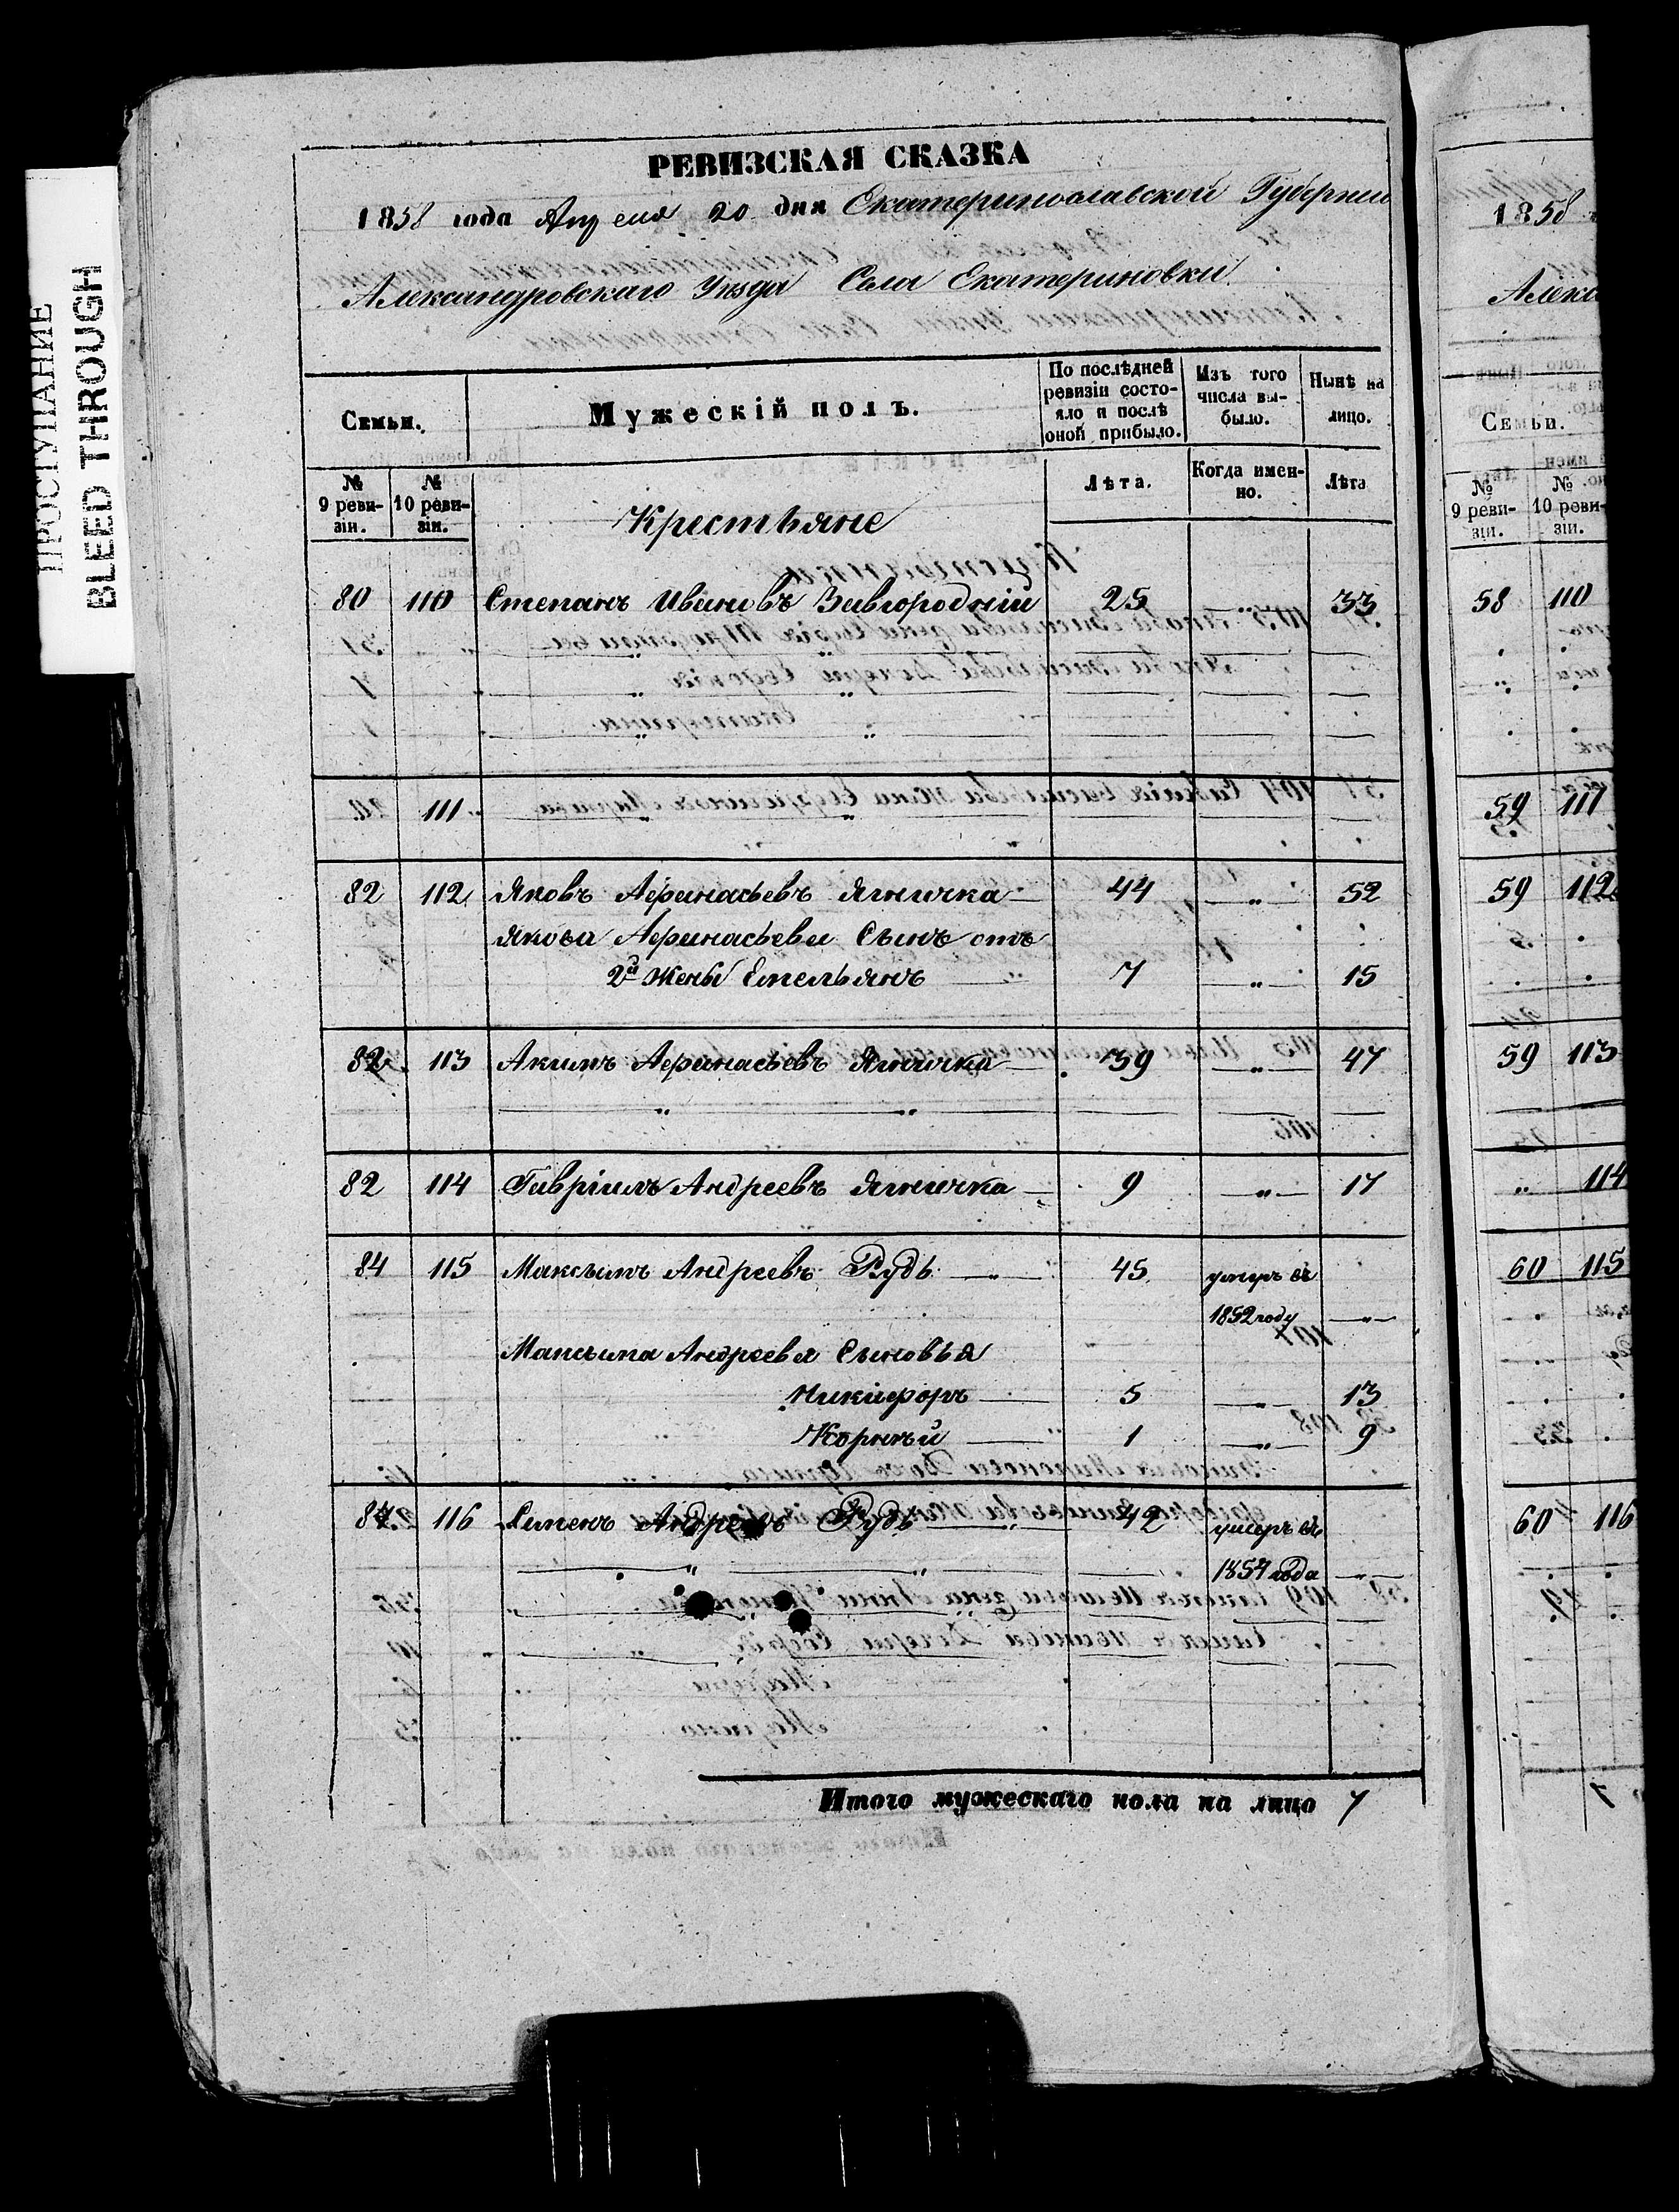 ПРОСТУПАНИЕ
BLEED THROUGH
РЕВИЗСКАЯ СКАЗКА
1858 года Апреля 20 дня Екатеринославской Губернии
Александровскаго Уезда Села Екатериновки
Семьи.
Мужескій полъ.
По послѣдней ревизіи состояло и послѣ оной прибыло.
Изъ того числа выбыло.
Нынѣ на лицо.
№ 9 ревизіи.
№ 10 ревизіи.
Лѣта.
Когда именно.
Лѣта
Крестьяне
80 110 Степанъ Ивановъ Завгородній 25 „ 33
111
82 112 Яковъ Афанасьевъ Ягничка 44 „ 52
Якова Афанасьева Сынъ отъ
2й жены Емельянъ 7 „ 15
82 113 Акимъ Афанасьевъ Ягничка 39 „ 47
82 114 Гавріилъ Андреевъ Ягничка 9 „ 17
84 115 Максымъ Андреевъ Рудь 45 умеръ въ
1852 году „
Максыма Андреева Сыновья
Никифоръ 5 „ 13
Корнѣй 1 „ 9
84 116 Семенъ Андреевъ Рудь 42 умеръ въ
1857 года
Итого мужескаго пола на лицо 7
1858
Алекса
Семьи.
№ 9 ревизіи.
№ 10 ревизіи.
58 110
59 111
59 112
59 113
„ 114
60 115
60 116